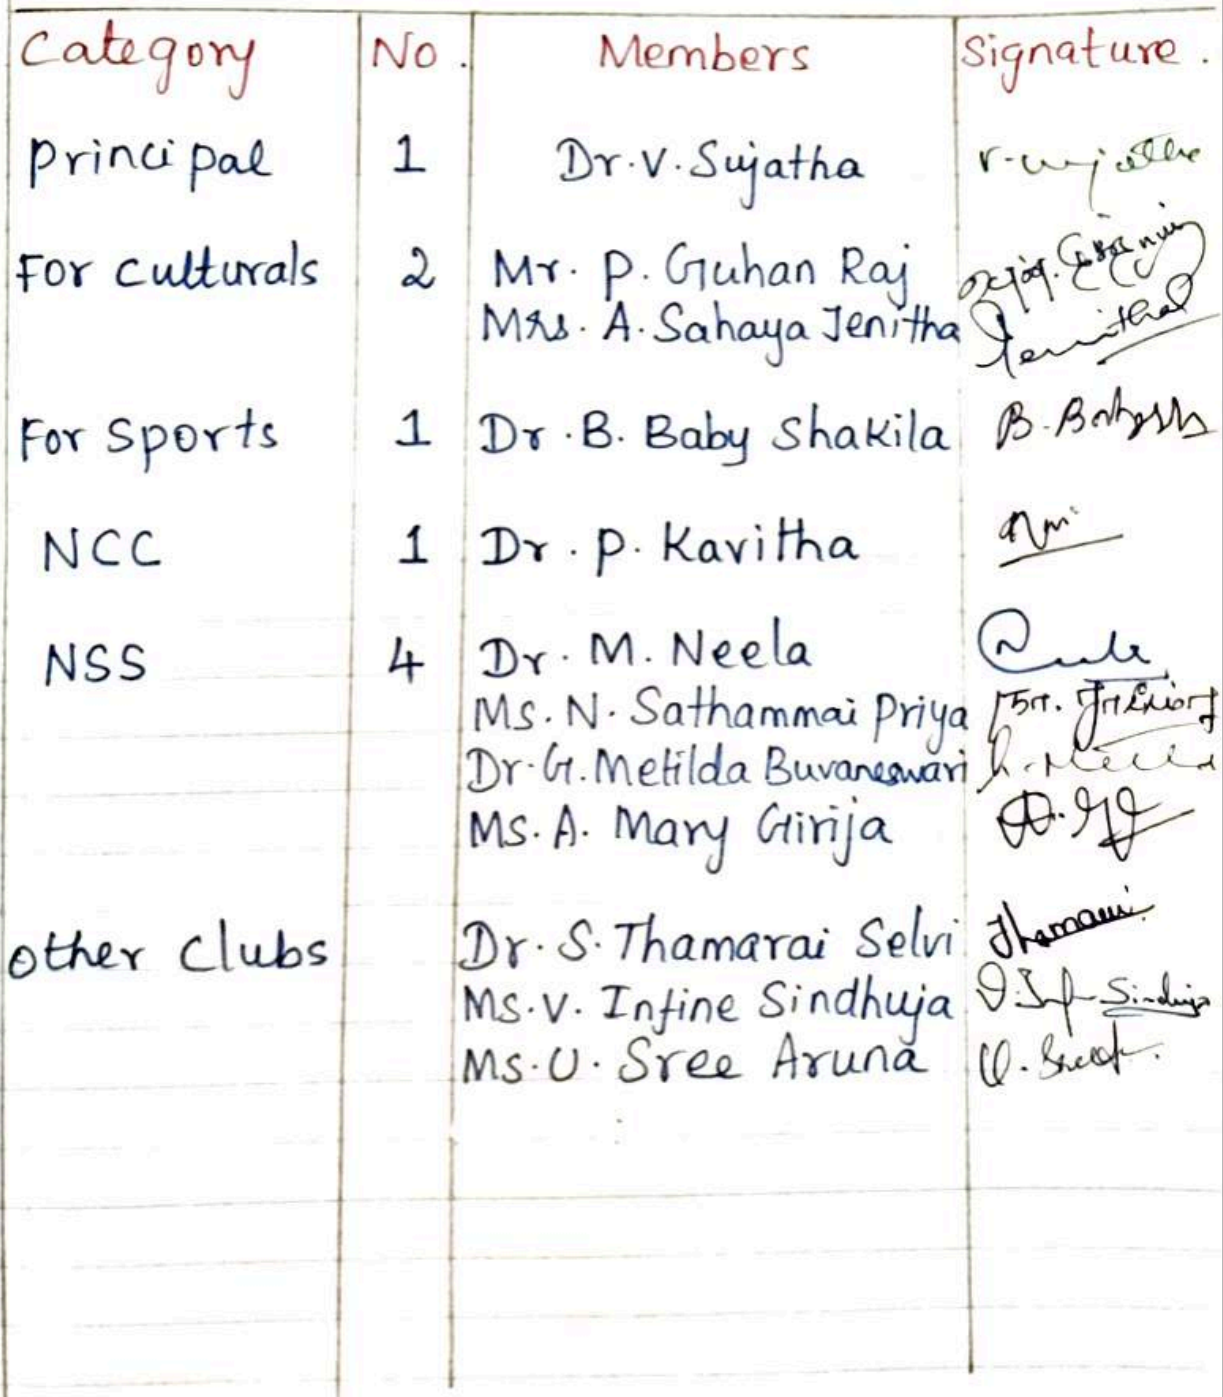 Category No. Members Signature.
Principal 1 Dr. V. Sujatha V. Sujatha
For Culturals 2 Mr. P. Guhan Raj
Mrs. A. Sahaya Jenitha Jenitha
For Sports 1 Dr. B. Baby Shakila B. Baby
NCC 1 Dr. P. Kavitha
NSS 4 Dr. M. Neela
Ms. N. Sathammai Priya
Dr. G. Metilda Buvaneswari
Ms. A. Mary Girija
Other Clubs Dr. S. Thamarai Selvi
Ms. V. Infine Sindhuja
Ms. U. Sree Aruna